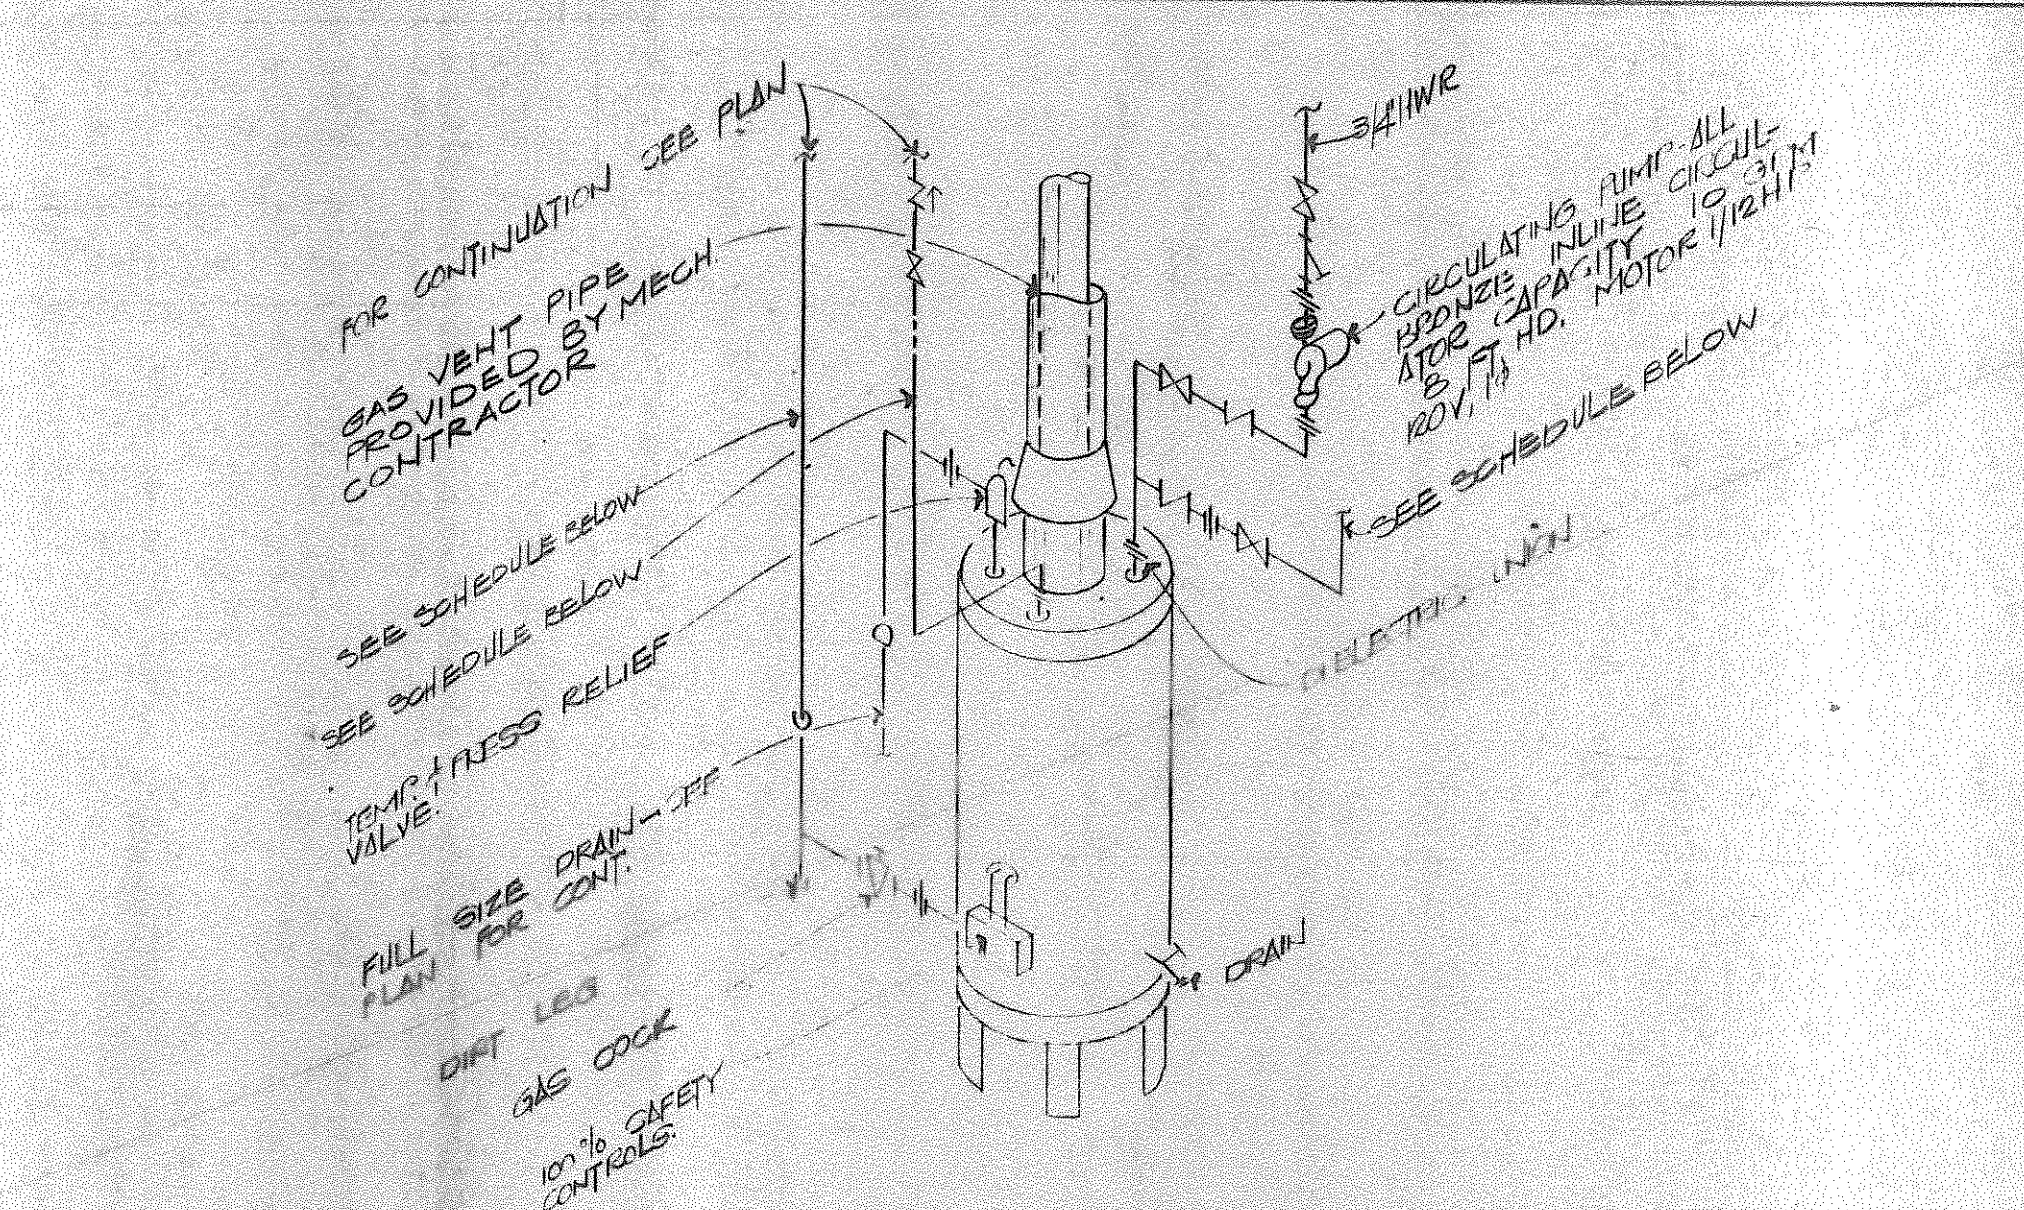 FOR CONTINUATION SEE PLAN
GAS VENT PIPE
PROVIDED BY MECH.
CONTRACTOR
SEE SCHEDULE BELOW
SEE SCHEDULE BELOW
TEMP. & PRESS RELIEF
VALVE.
FULL SIZE DRAIN-OFF
PLAN FOR CONT.
DIRT LEG
GAS COCK
100% SAFETY
CONTROLS.
3/4" HWR
CIRCULATING PUMP-ALL
BRONZE INLINE CIRCUL-
ATOR CAPACITY 10 GPM
8 FT. HD. MOTOR 1/12HP
SEE SCHEDULE BELOW
DIELECTRIC UNION
DRAIN